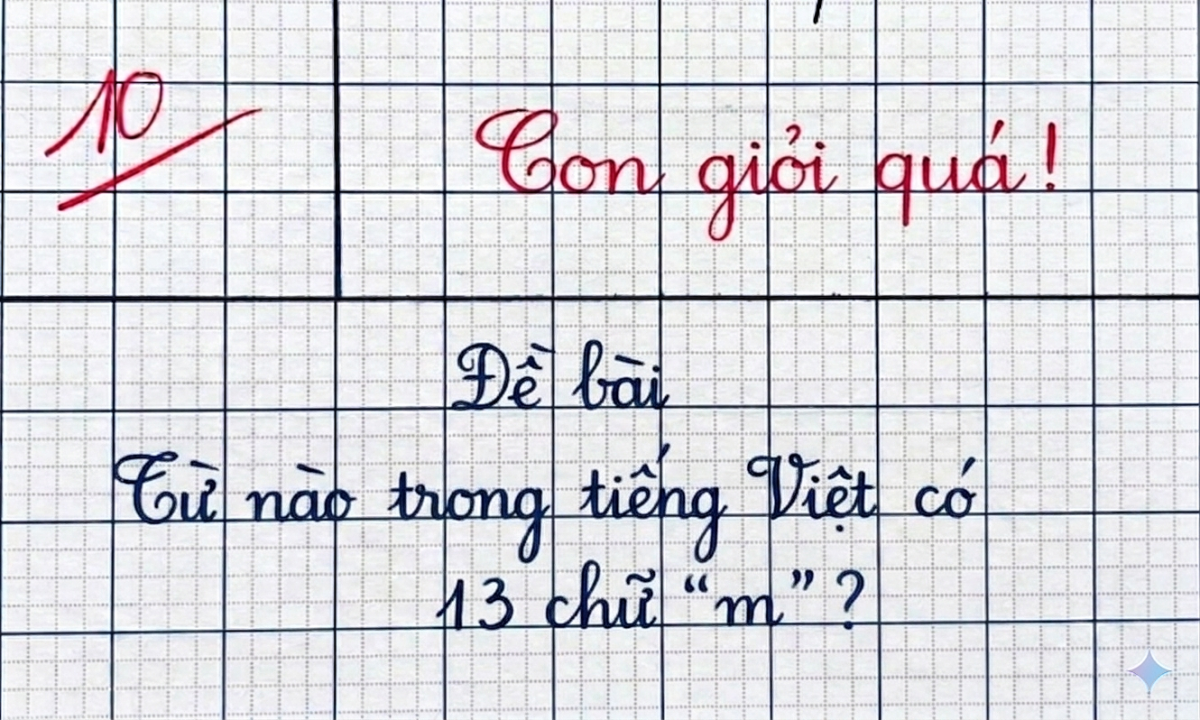 10
Con giỏi quá!
Đề bài
Từ nào trong tiếng Việt có
13 chữ “m”?